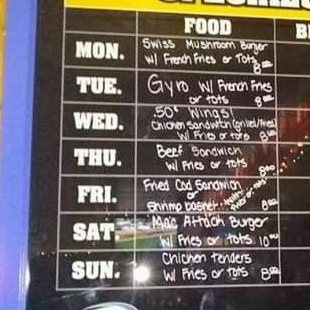 FOOD
MON.
Swiss Mushroom Burger
W/ French Fries or Tots
8⁰⁰
TUE.
Gyro W/ French Fries
or tots 8⁰⁰
WED.
.50¢ Wings!
Chicken Sandwich (grilled/fried)
W/ Fries or tots 8⁰⁰
THU.
Beef Sandwich
W/ Fries or tots
8⁰⁰
FRI.
Fried Cod Sandwich
or
Shrimp basket
8⁰⁰
SAT
Mac Attack Burger
W/ Fries or tots 10⁰⁰
SUN.
Chicken tenders
W/ Fries or tots 8⁰⁰